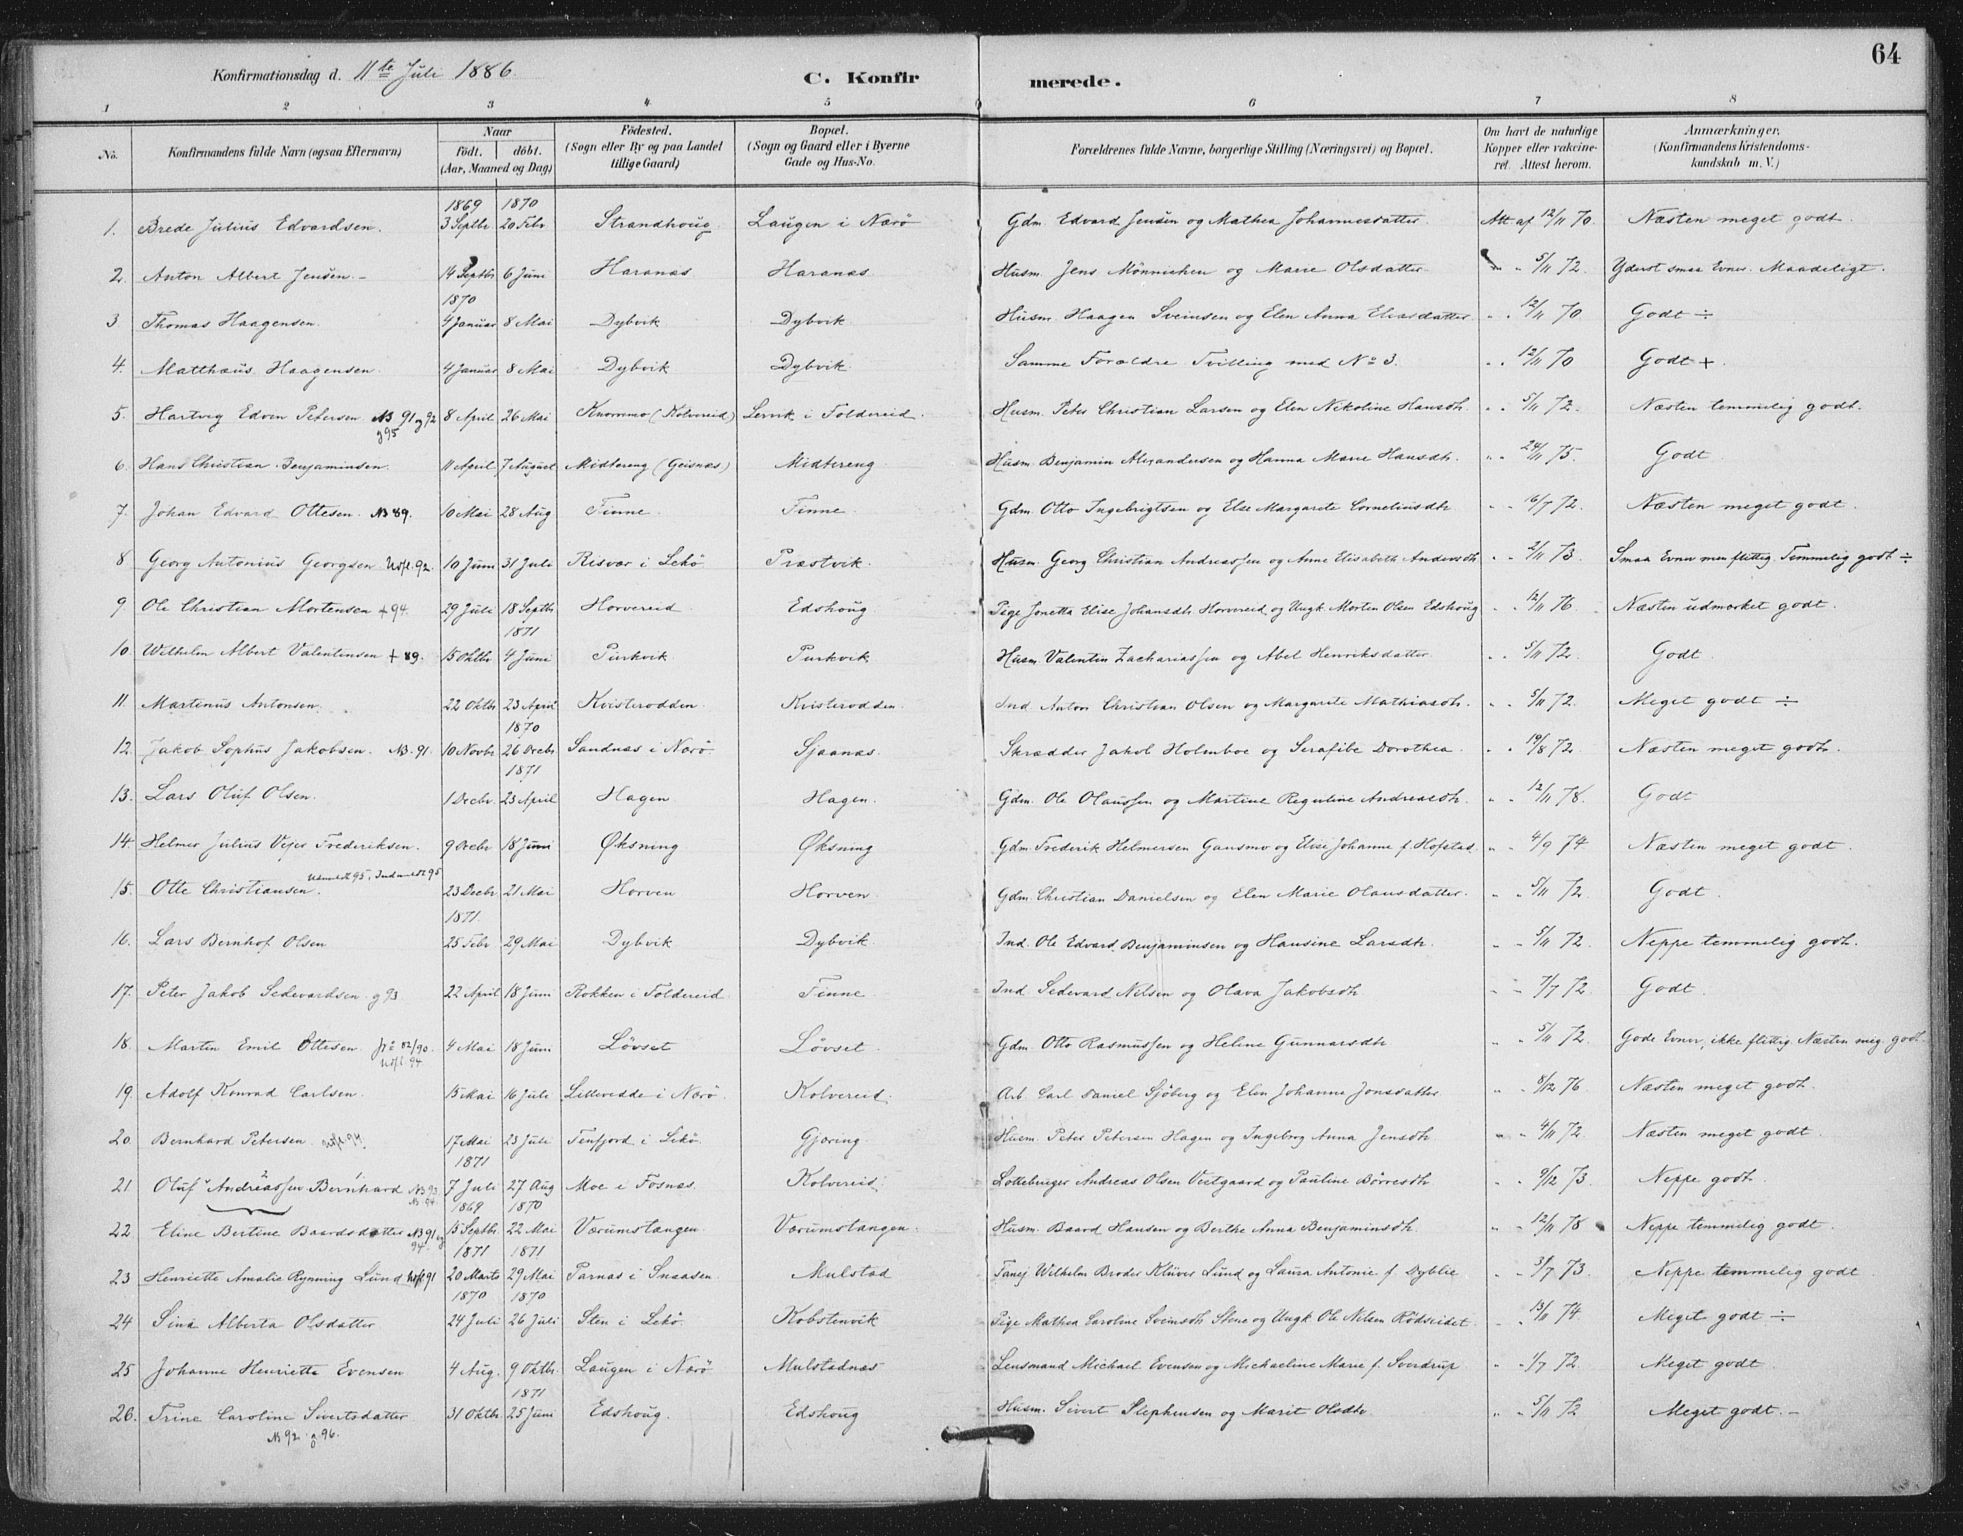 64
Konfirmationsdag d. 11te Juli 1886. C. Konfirmerede.
1 2 3 4 5 6 7 8
No. Konfirmandens fulde Navn (ogsaa Efternavn) Naar födt. döbt. (Aar, Maaned og Dag) Födested. (Sogn eller By og paa Landet tillige Gaard) Bopæl. (Sogn og Gaard eller i Byerne Gade og Hus-No. Forældrenes fulde Navne, borgerlige Stilling (Næringsvei) og Bopæl. Om havt de naturlige Kopper eller vaccineret. Attest herom. Anmærkninger. (Konfirmandens Kristendomskundskab m. V.)
1869 1870
1. Brede Julius Edvardsen. 3 Septbr 20 Febr Strandhoug Laugen i Nærö Gdm. Edvard Jensen og Mathea Johannesdatter. Att af 12/11 70. Næsten meget godt.
2. Anton Albert Jensen. 14 Septbr 6 Juni Haranæs Haranæs Husm. Jens Mönnichen og Marie Olsdatter. " " 5/11 72. Yderst smaa Evner. Maadeligt.
1870
3 Thomas Haagensen. 4 Januar 8 Mai Dybvik Dybvik Husm. Haagen Sveinsen og Elen Anna Eliasdatter. " " 12/11 70 Godt ÷
4. Matthæus Haagensen. 4 Januar 8 Mai Dybvik Dybvik. Samme Forældre Tvilling med No 3. " " 12/11 70 Godt +
5. Hartvig Edvin Petersen NB 91 og 92 og 95 8 April 26 Mai (Kolvereid) Lervik i Foldereid. Husm. Peter Christian Larsen og Elen Nikoline Hansdtr. " " 5/11 72. Næsten temmelig godt.
6. Hans Christian Benjaminsen. 11 April 7 August Midtereng (Geisnæs) Midtereng. Husm. Benjamin Alexandersen og Hanna Marie Hansdtr. " " 24/11 75. Godt.
7. Johan Edvard Ottesen. NB 89. 10 Mai 28 Aug Finne. Finne Gdm. Otto Ingebrigtsen og Else Margarete Corneliusdtr " " 16/7 72. Næsten meget godt.
8 Georg Antonius Georgsen Udfl. 92. 10 Juni 31 Juli Risvær i Lekö Præstvik. Husm. Georg Christian Andreassen og Anne Elisabeth Andersdtr " " 2/11 73. Smaa Evner men flittig. Temmelig godt ÷
9. Ole Christian Mortensen + 94. 29 Juli 18 Septbr Horvereid Edshoug Pige Jonetta Elise Johansdtr. Horvereid og Ungk. Morten Olsen Edshoug " " 12/11 76 Næsten udmærket godt.
1871
10. Wilhelm Albert Valentinsen + 89. 15 Oktbr 4 Juni Purkvik Purkvik Husm. Valentin Zachariassen og Abel Henriksdatter. " " 5/11 72. Godt.
11. Martinus Antonsen. 22 Oktbr 23 April Kvisterodden. Kvisterodden. Ind. Anton Christian Olsen og Margarete Mathiasdtr. " " 5/11 72. Meget godt ÷
1870
12. Jakob Sophus Jakobsen. NB. 91. 10 Novbr 26 Decbr Sandnæs i Nærö. Sjaanæs. Skrædder Jakob Holmboe og Dorothea. " " 19/8 72. Næsten meget godt.
1871
13. Lars Oluf Olsen. 1 Decbr. 23 April Hagen Hagen. Gdm. Ole Olaussen og Martine Reguline Andreasdtr. " " 12/11 78. Godt
14. Helmer Julius Vejer Frederiksen. 9 Decbr 18 Juni Øksning Øksning Gdm. Frederik Helmersen Gansmo og Elise Johanne f. Hofstad " " 4/9 74 Næsten meget godt.
Udmeldt 95, Indmeldt 95
15. Otte Christiansen. 23 Decbr 21 Mai Horven Horven. Gdm. Christian Danielsen og Elen Marie Olausdatter. " " 5/11 72. Godt.
1871.
16. Lars Bernhof Olsen 25 Febr 29 Mai Dybvik Dybvik. Ind. Ole Edvard Benjaminsen og Hansine Larsdtr. " " 5/11 72. Neppe temmelig godt.
17. Peter Jakob Sedevardsen g 93. 22 April 18 Juni Rokken i Foldereid. Finne Ind. Sedevard Nilsen og Olava Jakobsdtr " " 7/7 72. Godt.
18. Martin Emil Ottesen. 4 Mai 18 Juni Lövset Lövset Gdm. Otto Rasmussen og Heline Gunnarsdtr " " 5/11 72. Gode Evner, ikke flittig. Næsten meg. godt
19. Adolf Konrad Carlsen. 15 Mai 16 Juli i Nærö. Kolvereid. Arb. Carl Daniel Sjöberg og Elen Johanne Jonsdatter " " 8/12 76. Næsten meget godt.
20. Bernhard Petersen. Udfl. 94. 17 Mai 23 Juli i Lekö. Gjæring. Husm. Peter Petersen Hagen og Ingeborg Anna Jensdtr " " 4/11 72. Næsten meget godt.
1871
21 Oluf Andreassen Bernhard 7 Juli 27 Aug Moe i Fosnæs. Kolvereid Andreas Olsen Vestgaard og Pauline Börresdtr " " 9/12 73. Neppe godt.
1869 1870
22 Eline Bertine Baardsdatter NB 91 og 94. 15 Septbr. 22 Mai Værumstangen. Værumstangen. Husm. Baard Hansen og Berthe Anna Benjaminsdtr. " " 12/11 78 Neppe temmelig godt.
1871 1871
23 Henriette Amalie Rynning Lund Udfl 91 20 Marts 29 Mai Parnas i Snaasen. Mulstad Wilhelm Broder Klüver Lund og Laura Antonie f. Dyblie " " 3/7 73. Neppe temmelig godt
1870 1870
24 Sina Alberta Olsdatter 24 Juli 26 Juli Sten i Lekö. Kobstenvik Pige Mathea Caroline Sveinsdtr. Stene og Ungk. Ole Nilsen Rödseidet. " " 13/11 74. Meget godt ÷
25 Johanne Henriette Evensen 4 Aug. 9 Oktbr. Laugen i Nærö Mulstadnæs Lensmand Michael Evensen og Michaeline Marie f. Sverdrup " " 1/7 72. Meget godt.
1871
26. Trine Caroline Sivertsdatter 31 Oktbr. 25 Juni Edshoug. Edshoug Husm. Sivert Stephensen og Marit Olsdtr " " 5/11 72 Meget godt. -
NB 92 og 96.